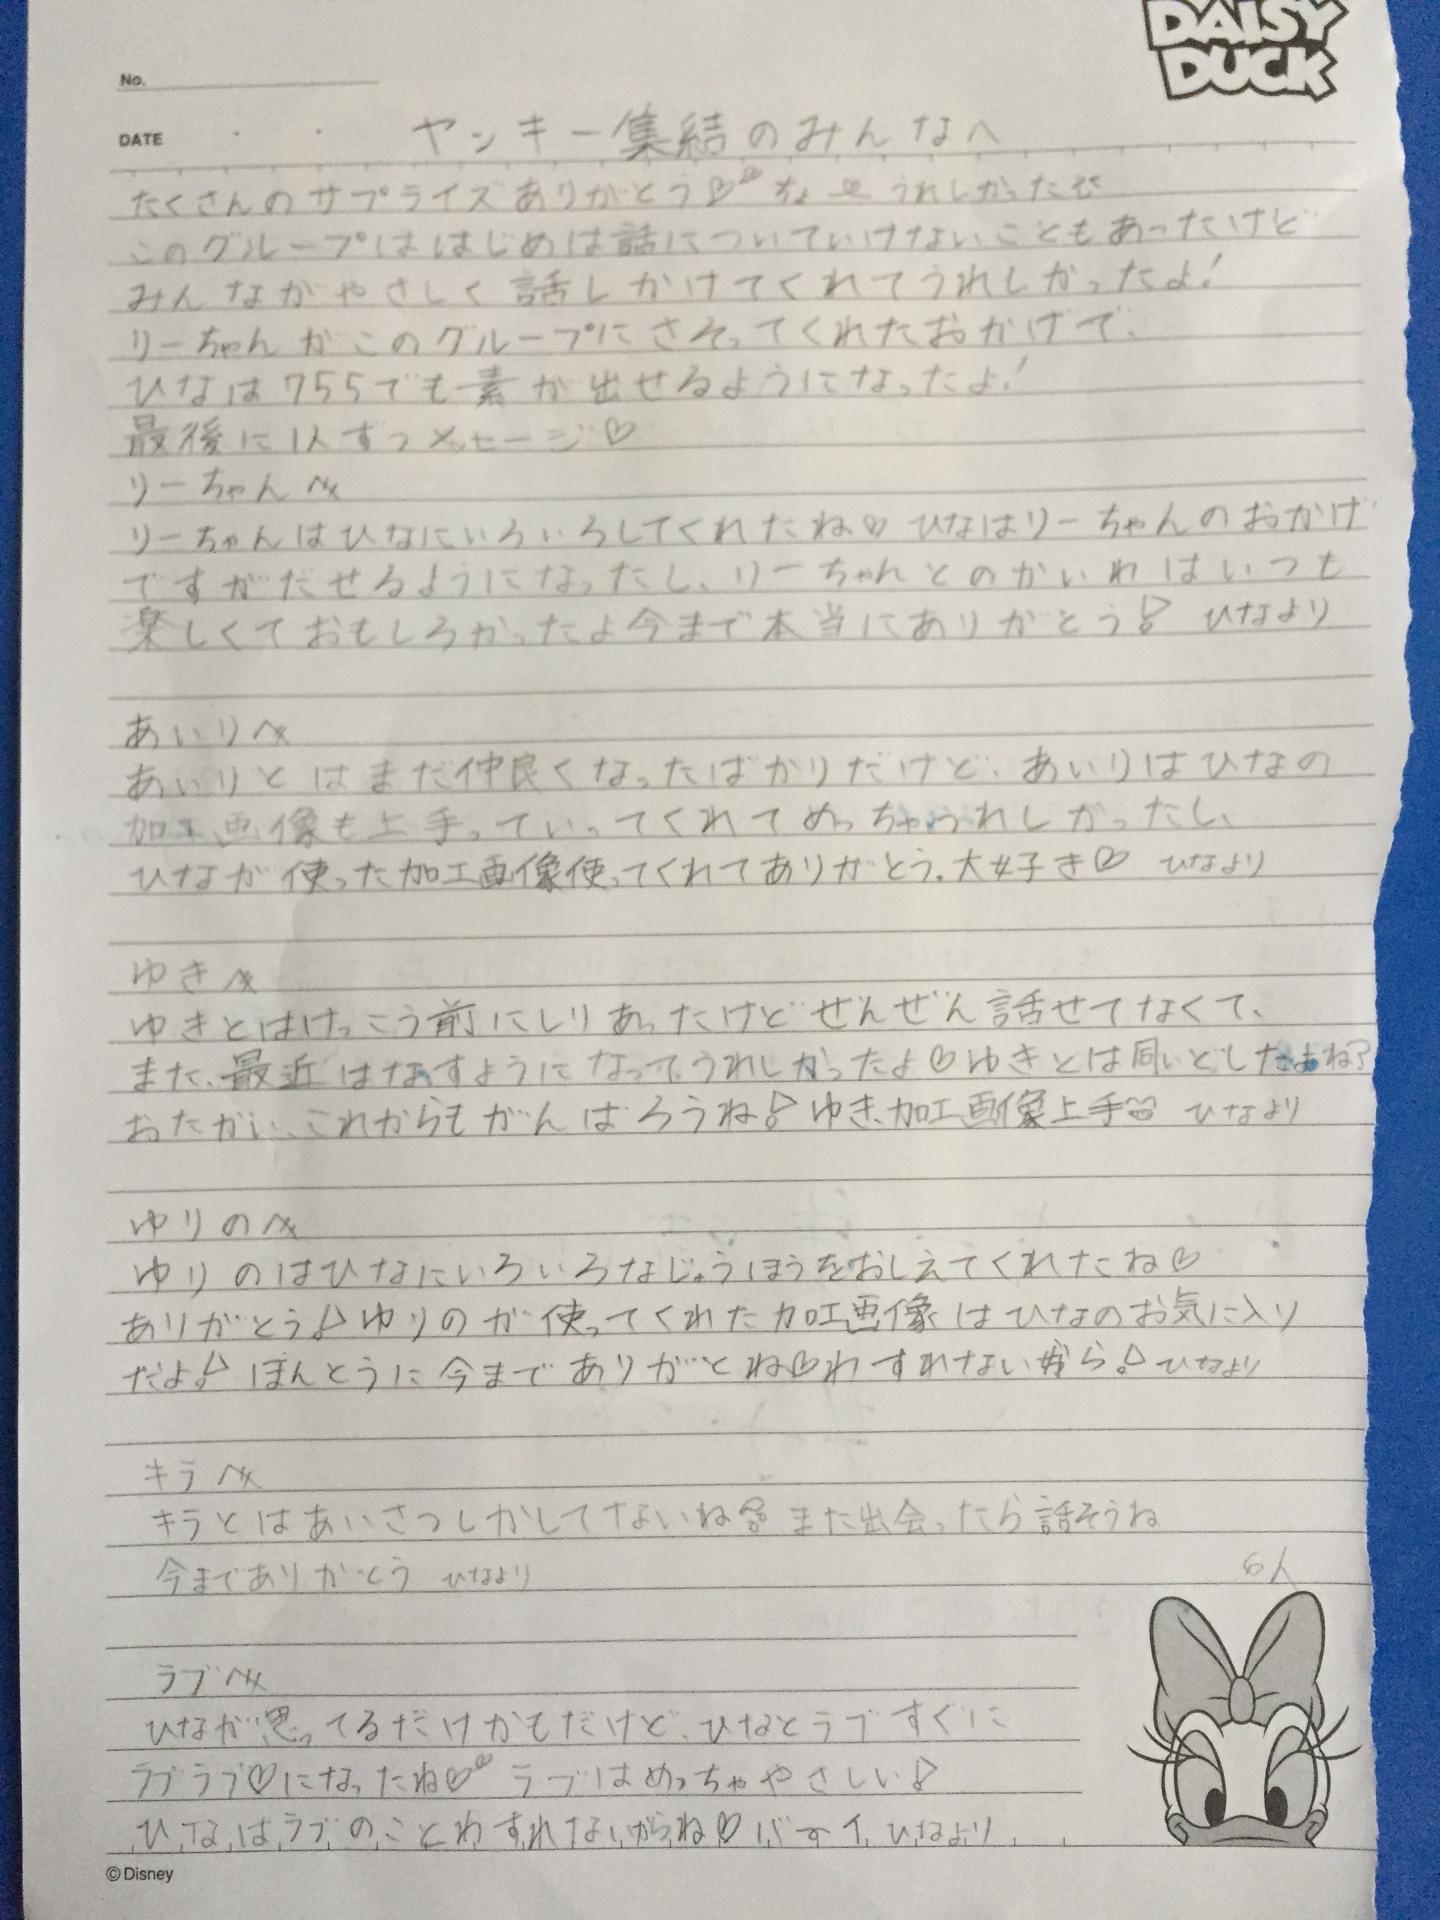 DAISY
DUCK
No.
DATE
ヤンキー集結のみんなへ
たくさんのサプライズありがとう♡ ちょーうれしかったぜ
このグループははじめは話についていけないこともあったけど
みんながやさしく話しかけてくれてうれしかったよ!
りーちゃんがこのグループにさそってくれたおかげで、
ひなは755でも素が出せるようになったよ!
最後に1人ずつメッセージ♡
りーちゃんへ
りーちゃんはひなにいろいろしてくれたね♡ ひなはりーちゃんのおかげ
ですがだせるようになったし、りーちゃんとのかいわはいつも
楽しくておもしろかったよ今まで本当にありがとう♪ ひなより
あいりへ
あいりとはまだ仲良くなったばかりだけど、あいりはひなの
加工画像も上手っていってくれてめっちゃうれしかったし、
ひなが使った加工画像使ってくれてありがとう。大好き♡ ひなより
ゆきへ
ゆきとはけっこう前にしりあったけどぜんぜん話せてなくて、
また、最近はなすようになってうれしかったよ♡ゆきとは同いどしだよね?
おたがい、これからもがんばろうね♪ ゆき、加工画像上手 ひなより
ゆりのへ
ゆりのはひなにいろいろなじょうほうをおしえてくれたね♡
ありがとう♪ ゆりのが使ってくれた加工画像はひなのお気に入り
だよ♪ ほんとうに今までありがとね♡わすれないから♪ ひなより
キラへ
キラとはあいさつしかしてないね また出会ったら話そうね
今までありがとう ひなより
ラブへ
ひなが思ってるだけかもだけど、ひなとラブすぐに
ラブラブ♡になったね♡ ラブはめっちゃやさしい♪
ひなはラブのことわすれないからね♡ バーイ ひなより
© Disney